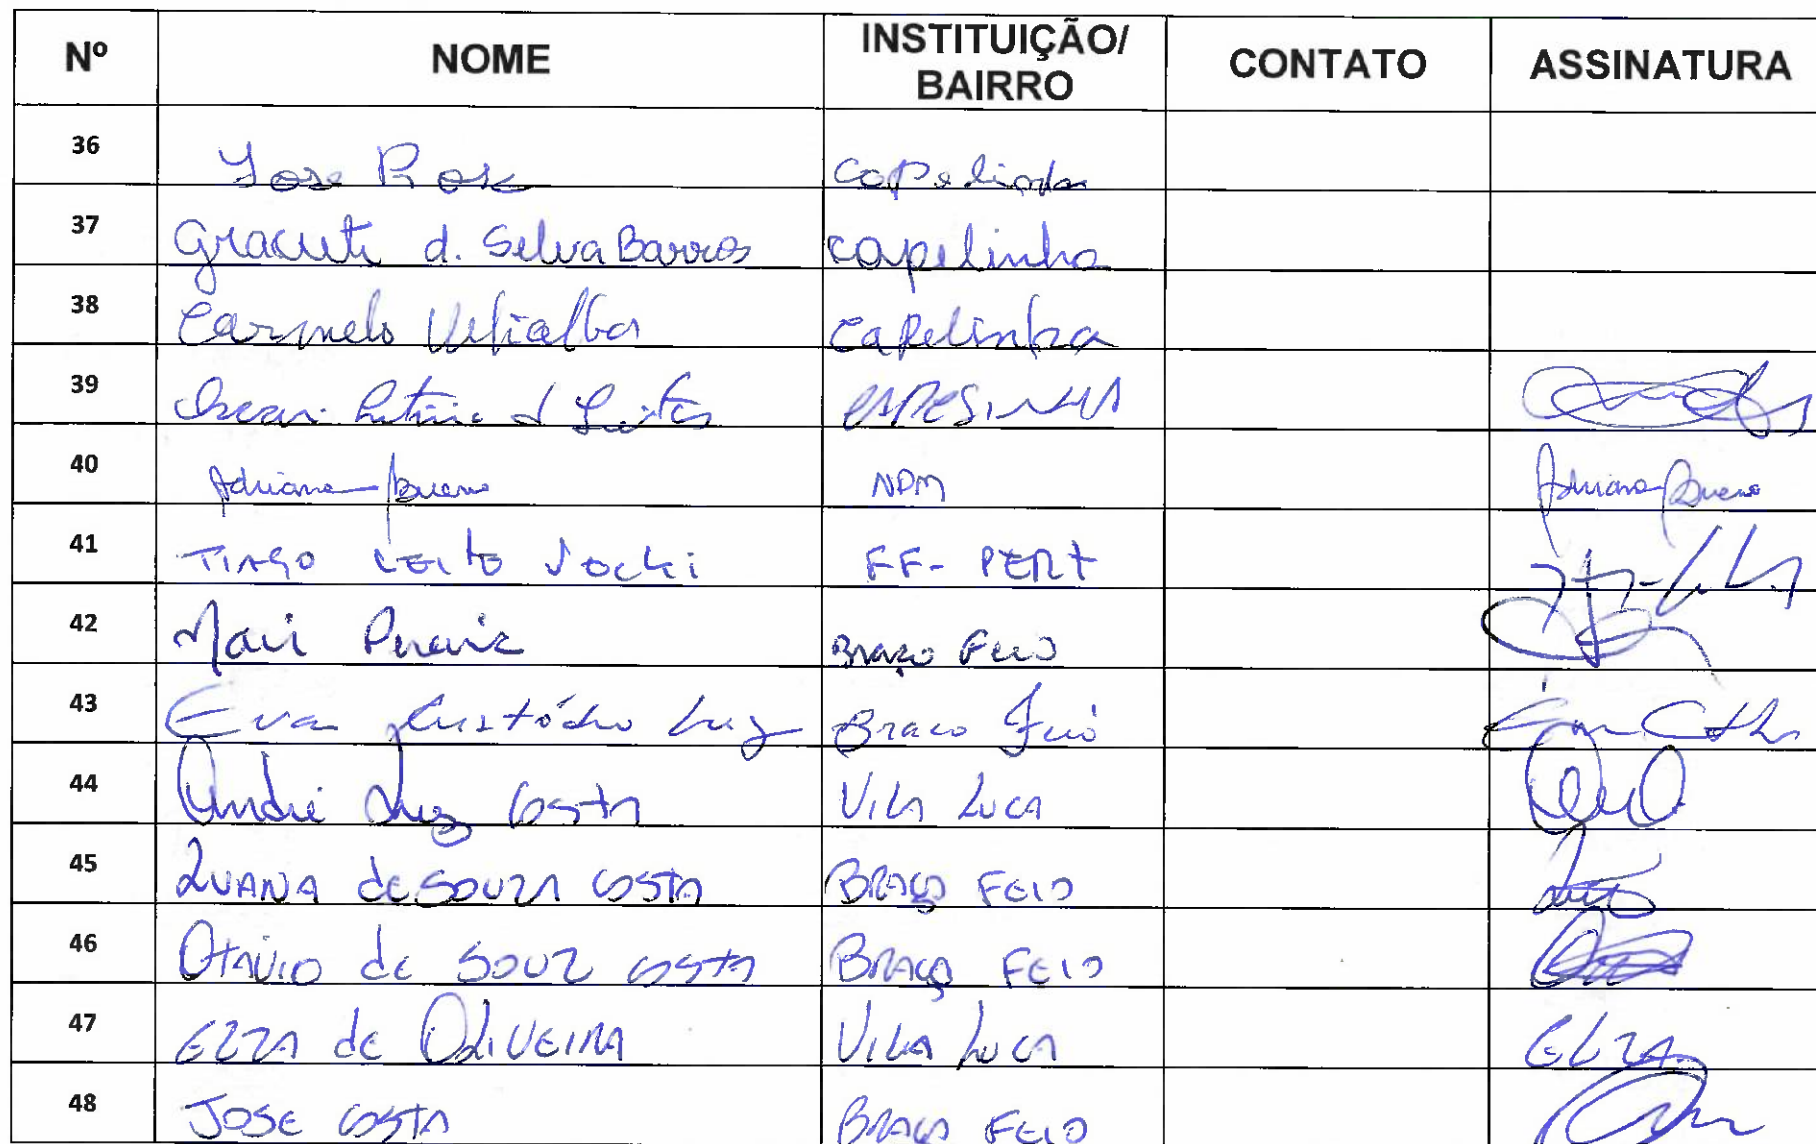 Nº NOME INSTITUIÇÃO/ BAIRRO CONTATO ASSINATURA
36 Jose Rosa Capelinha
37 Gracieti d. Silva Barros Capelinha
38 Carmelo Capelinha
39
40 Adriana Bueno NDM Adriana Bueno
41 TIAGO LEITE FF- PERT
42 Braço Feio
43 Eva Custódio Luz Braco Feio
44 André Luz COSTA VILA LUCA
45 LUANA de SOUZA COSTA BRAÇO FEIO
46 OTAVIO de SOUZ COSTA BRAÇO FEIO
47 ELZA de OLIVEIRA VILA LUCA ELZA
48 JOSE COSTA BRAÇO FEIO